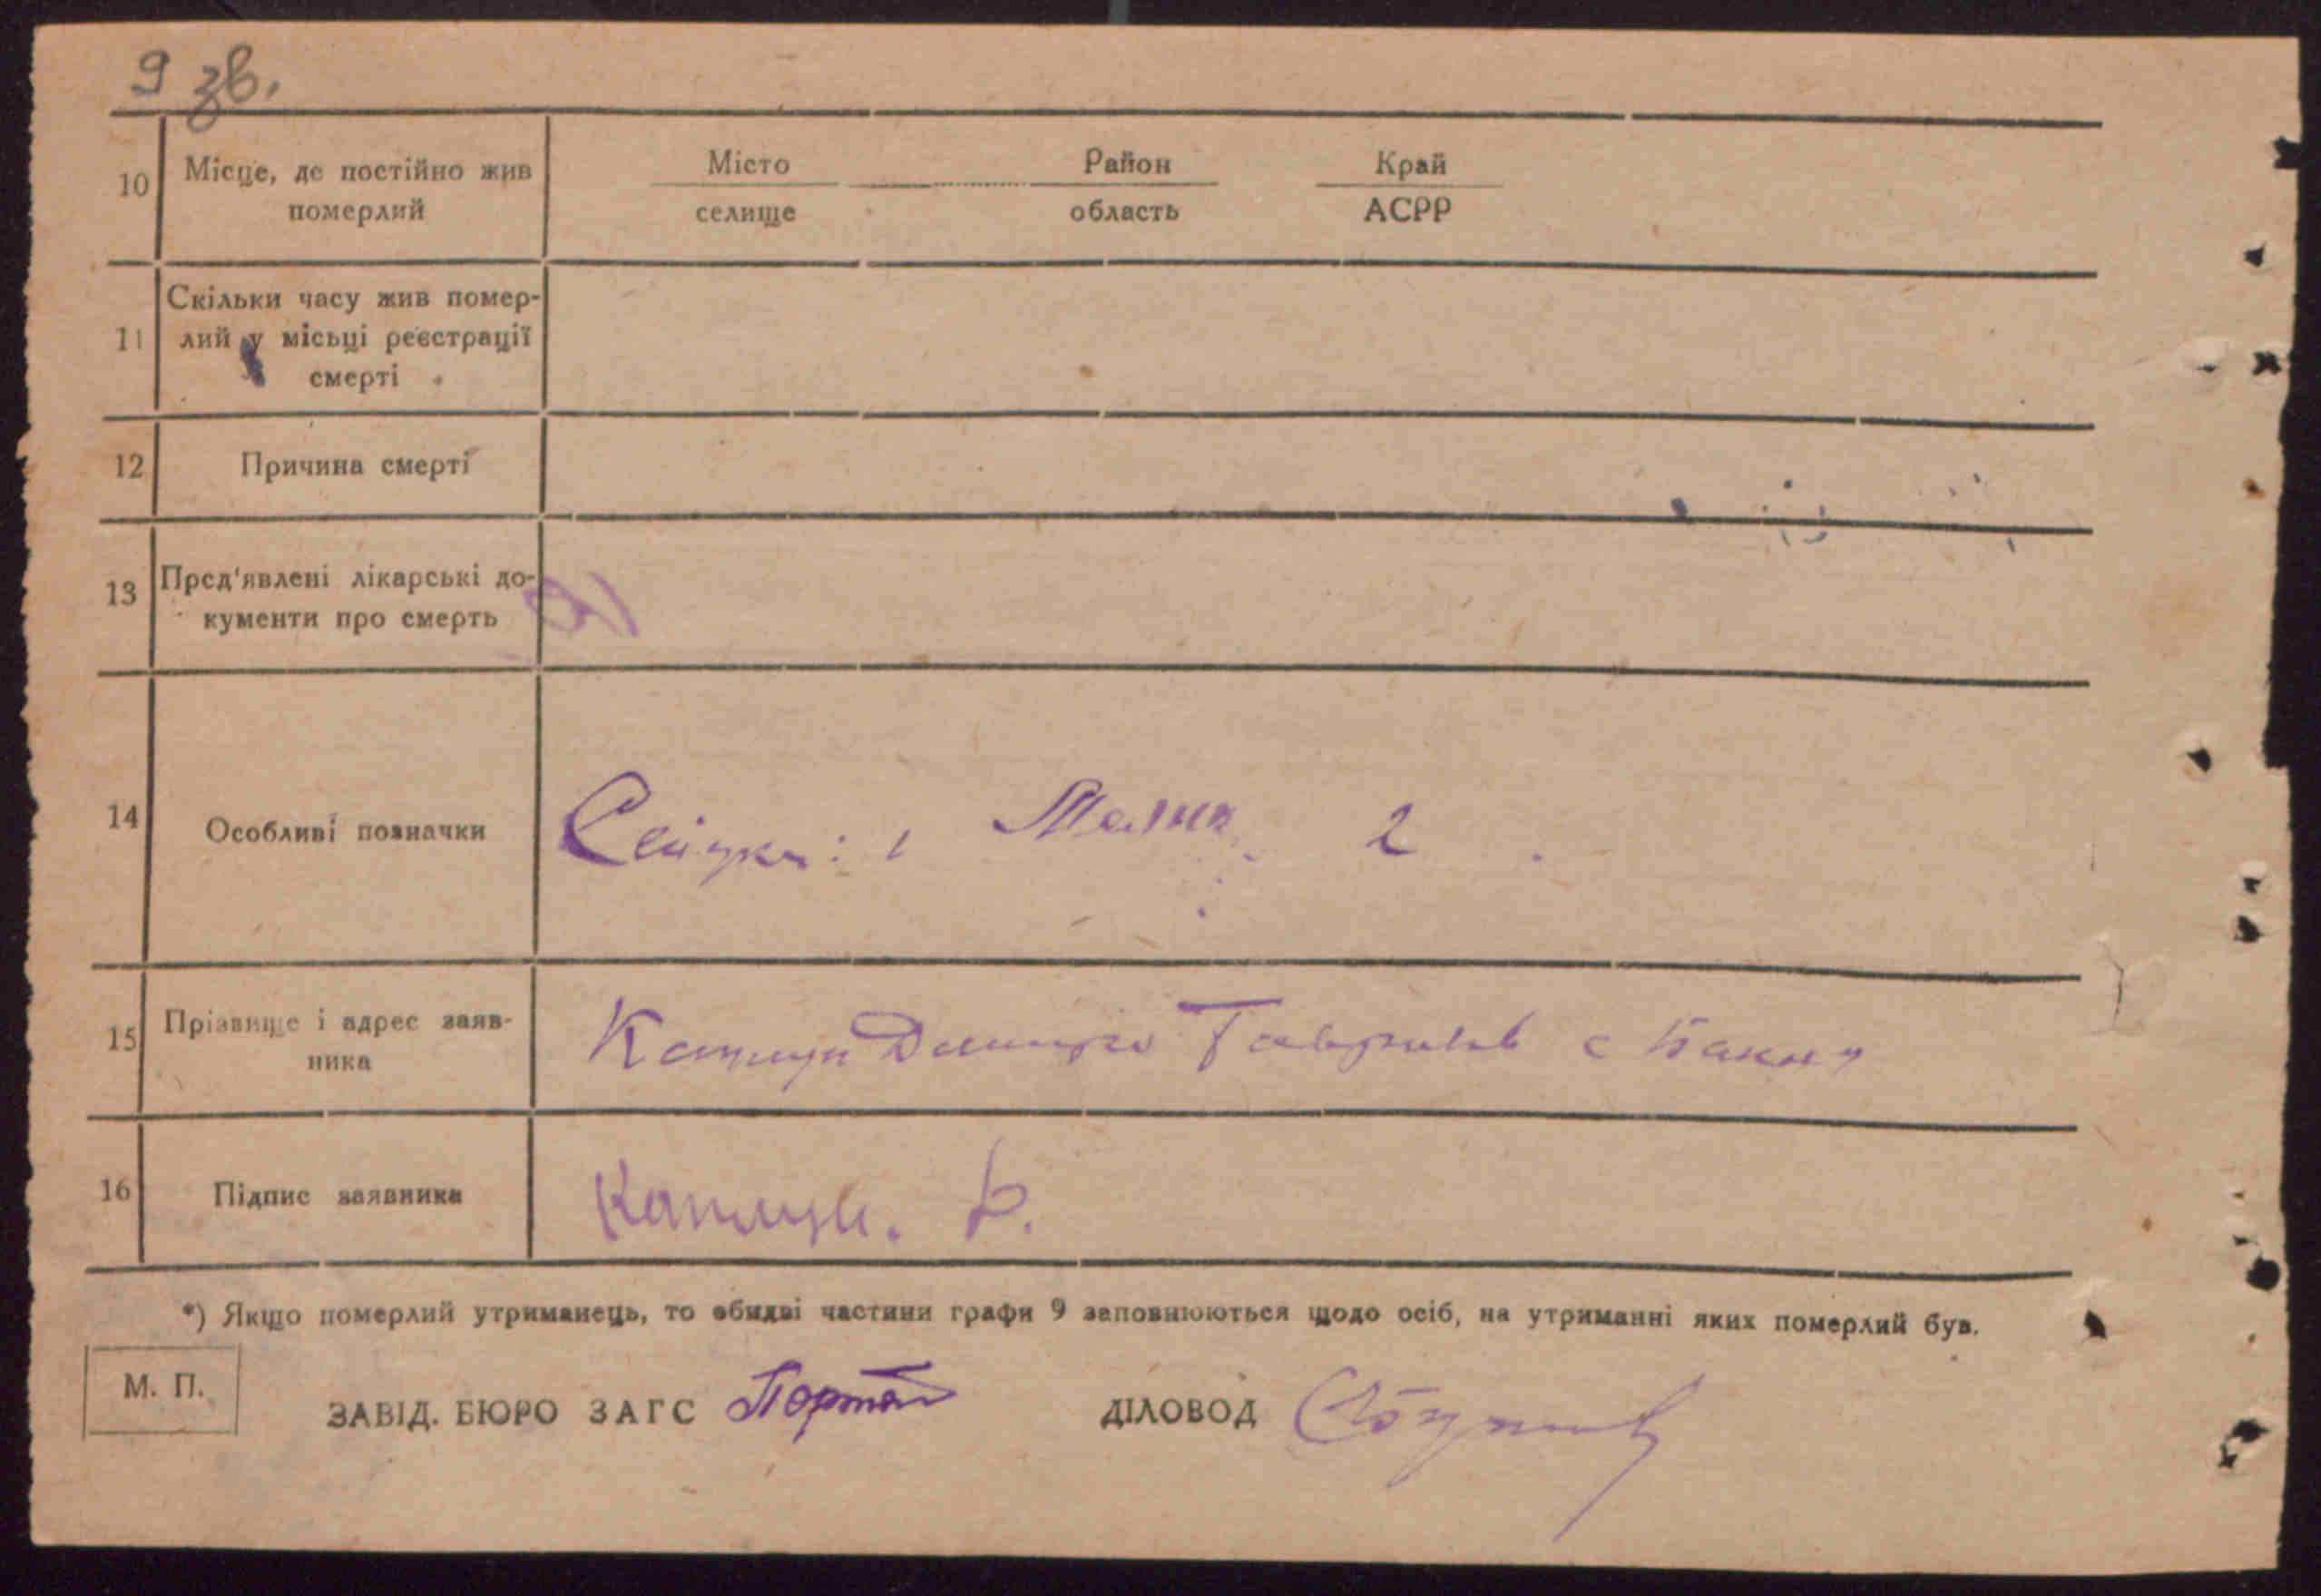 9 зв.
10 Місце, де постійно жив померлий
Місто Район Край
селище область АСРР
11 Скільки часу жив помер-
лий у місьці реєстрації
смерті
12 Причина смерті
13 Пред'явлені лікарські до-
кументи про смерть
14 Особливі позначки
: 1 2
15 Прізвище і адрес заяв-
ника
Дмитро с
16 Підпис заявника
*) Якщо померлий утриманець, то обидві частини графи 9 заповнюються щодо осіб, на утриманні яких померлий був.
М. П.
ЗАВІД. БЮРО ЗАГС ДІЛОВОД